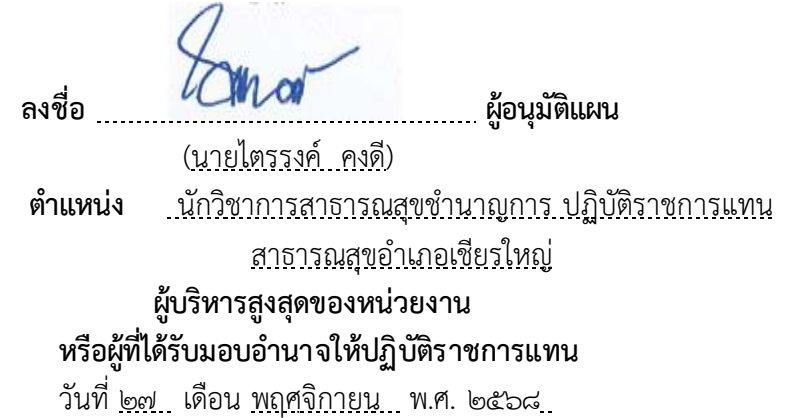 ลงชื่อ ผู้อนุมัติแผน
(นายไตรรงค์ คงดี)
ตำแหน่ง นักวิชาการสาธารณสุขชำนาญการ ปฏิบัติราชการแทน
สาธารณสุขอำเภอเชียรใหญ่
ผู้บริหารสูงสุดของหน่วยงาน
หรือผู้ที่ได้รับมอบอำนาจให้ปฏิบัติราชการแทน
วันที่ ๒๗ เดือน พฤศจิกายน พ.ศ. ๒๕๖๘